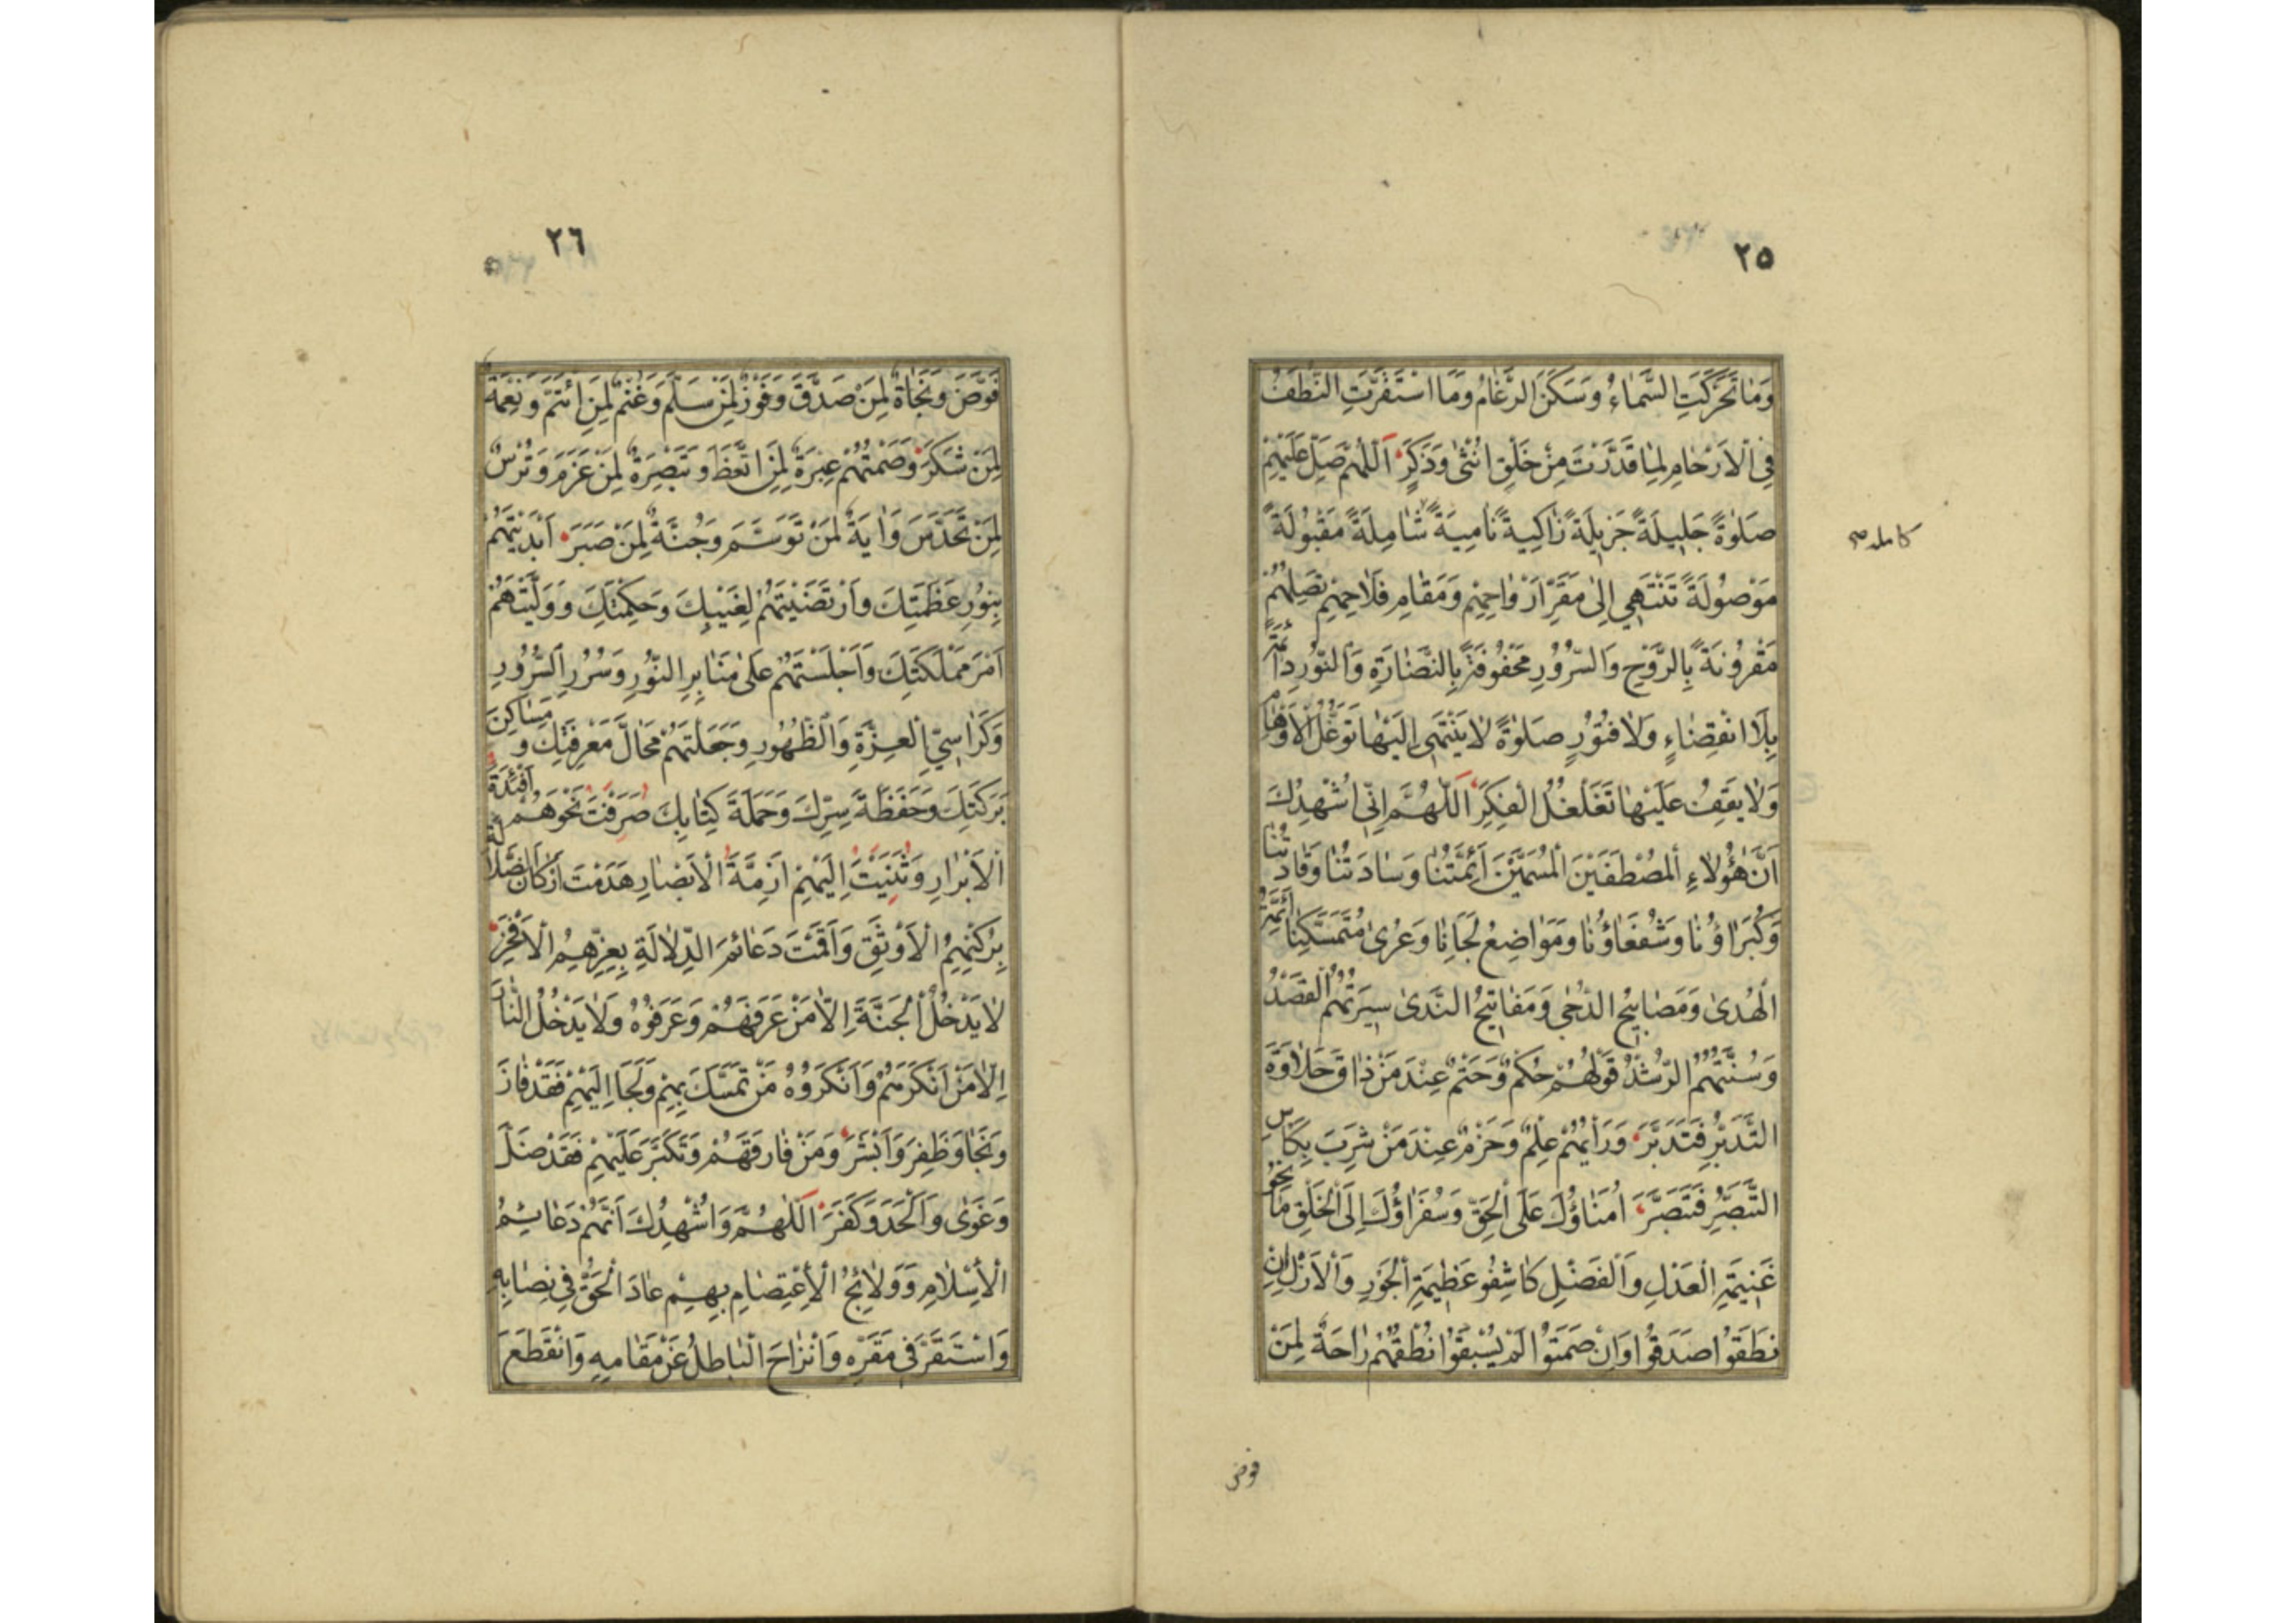 ٢٥
وَمَا تَحَرَّكَتِ السَّمَاءُ وَسَكَنَ الرَّغَامُ وَمَا اسْتَقَرَّتِ النُّطَفُ
فِي الْاَرْحَامِ لِمَا قَدَّرْتَ مِنْ خَلْقِ اُنْثٰى وَذَكَرٍ اَللّٰهُمَّ صَلِّ عَلَيْهِمْ
صَلٰوةً جَلِيلَةً جَزِيلَةً زَاكِيةً نَامِيَةً شَامِلَةً مَقْبُولَةً
كامله صح
مَوْصُولَةً تَنْتَهِي اِلٰى مَقَرِّ اَرْوَاحِهِمْ وَمَقَامِ فَلَاحِهِمْ تَصِلُهُمْ
مَقْرُونَةً بِالرَّوْحِ وَالسُّرُورِ مَحْفُوفَةً بِالنَّضَارَةِ وَالنُّورِ دَائِمَةً
بِلَا انْقِضَاءٍ وَلَا فُتُورٍ صَلٰوةً لَا يَنْتَهِي اِلَيْهَا تَوَغُّلُ الْاَوْهَامِ
وَلَا يَقِفُ عَلَيْهَا تَغَلْغُلُ الْفِكَرِ اَللّٰهُمَّ اِنِّي اُشْهِدُكَ
اَنَّ هٰؤُلَاءِ الْمُصْطَفَيْنَ الْمُسَمَّيْنَ اَئِمَّتُنَا وَسَادَتُنَا وَقَادَتُنَا
وَكُبَرَاؤُنَا وَشُفَعَاؤُنَا وَمَوَاضِعُ لَجَائِنَا وَعُرٰى مُتَمَسَّكِنَا اَئِمَّةُ
الْهُدٰى وَمَصَابِيحُ الدُّجٰى وَمَفَاتِيحُ النَّدٰى سِيرَتُهُمُ الْقَصْدُ
وَسُنَّتُهُمُ الرُّشْدُ قَوْلُهُمْ حُكْمٌ وَحَتْمٌ عِنْدَ مَنْ ذَاقَ حَلَاوَةَ
التَّدَبُّرِ فَتَدَبَّرَ وَرَأْيُهُمْ عِلْمٌ وَحَزْمٌ عِنْدَ مَنْ شَرِبَ بِكَأْسِ
التَّبَصُّرِ فَتَبَصَّرَ اُمَنَاؤُكَ عَلَى الْحَقِّ وَسُفَرَاؤُكَ اِلَى الْخَلْقِ
غَنِيمَةِ الْعَدْلِ وَالْفَضْلِ كَاشِفُو عَظِيمَةِ الْجَوْرِ وَالْاَزْلِ اِنْ
نَطَقُوا صَدَقُوا وَاِنْ صَمَتُوا لَمْ يُسْبَقُوا نُطْقُهُمْ رَاحَةٌ لِمَنْ
فوض
٢٦
فَوَّضَ وَنَجَاةٌ لِمَنْ صَدَّقَ وَفَوْزٌ لِمَنْ سَلَّمَ وَغُنْمٌ لِمَنِ ائْتَمَّ وَنِعْمَةٌ
لِمَنْ شَكَرَ وَصَمْتُهُمْ عِبْرَةٌ لِمَنِ اتَّعَظَ وَتَبْصِرَةٌ لِمَنْ عَزَمَ وَتُرْسٌ
لِمَنْ تَحَدَّسَ وَاٰيَةٌ لِمَنْ تَوَسَّمَ وَجُنَّةٌ لِمَنْ صَبَرَ اَبْدَيْتَهُمْ
بِنُورِ عَظَمَتِكَ وَارْتَضَيْتَهُمْ لِغَيْبِكَ وَحِكْمَتِكَ وَوَلَّيْتَهُمْ
اَمْرَ مَمْلَكَتِكَ وَاَجْلَسْتَهُمْ عَلٰى مَنَابِرِ النُّورِ وَسُرُرِ السُّرُورِ
وَكَرَاسِيِّ الْعِزَّةِ وَالظُّهُورِ وَجَعَلْتَهُمْ مَحَالَّ مَعْرِفَتِكَ وَمَسَاكِنَ
بَرَكَتِكَ وَحَفَظَةَ سِرِّكَ وَحَمَلَةَ كِتَابِكَ صَرَفْتَ نَحْوَهُمْ اَفْئِدَةَ
الْاَبْرَارِ وَثَنَيْتَ اِلَيْهِمْ اَزِمَّةَ الْاَبْصَارِ هَدَمْتَ اَرْكَانَ الضَّلَالَةِ
بِرُكْنِهِمُ الْاَوْثَقِ وَاَقَمْتَ دَعَائِمَ الدِّلَالَةِ بِعِزِّهِمُ الْاَفْخَرِ
لَا يَدْخُلُ الْجَنَّةَ اِلَّا مَنْ عَرَفَهُمْ وَعَرَفُوهُ وَلَا يَدْخُلُ النَّارَ
اِلَّا مَنْ اَنْكَرَهُمْ وَاَنْكَرُوهُ مَنْ تَمَسَّكَ بِهِمْ وَلَجَا اِلَيْهِمْ فَقَدْ فَازَ
وَنَجَا وَظَفِرَ وَاَبْشَرَ وَمَنْ فَارَقَهُمْ وَتَكَبَّرَ عَلَيْهِمْ فَقَدْ ضَلَّ
وَغَوٰى وَاَلْحَدَ وَكَفَرَ اَللّٰهُمَّ وَاُشْهِدُكَ اَنَّهُمْ دَعَائِمُ
الْاِسْلَامِ وَوَلَائِجُ الْاِعْتِصَامِ بِهِمْ عَادَ الْحَقُّ فِي نِصَابِهِ
وَاسْتَقَرَّ فِي مَقَرِّهِ وَانْزَاحَ الْبَاطِلُ عَنْ مَقَامِهِ وَانْقَطَعَ